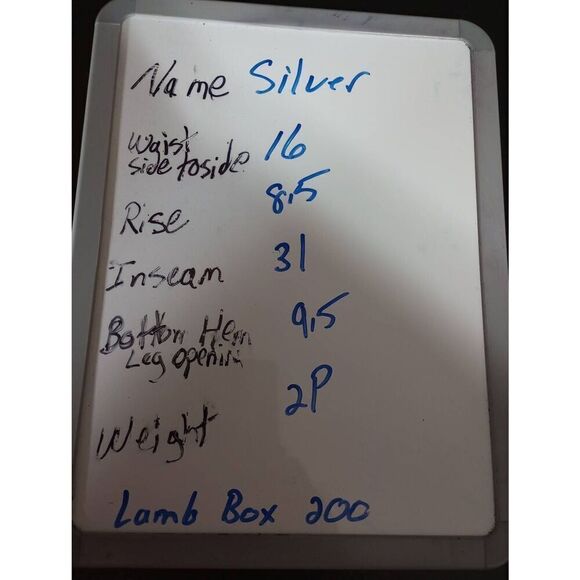 Name Silver
Waist
side to side 16
Rise 8.5
Inseam 31
Bottom Hem 9.5
Leg opening
Weight 2P
Lamb Box 200